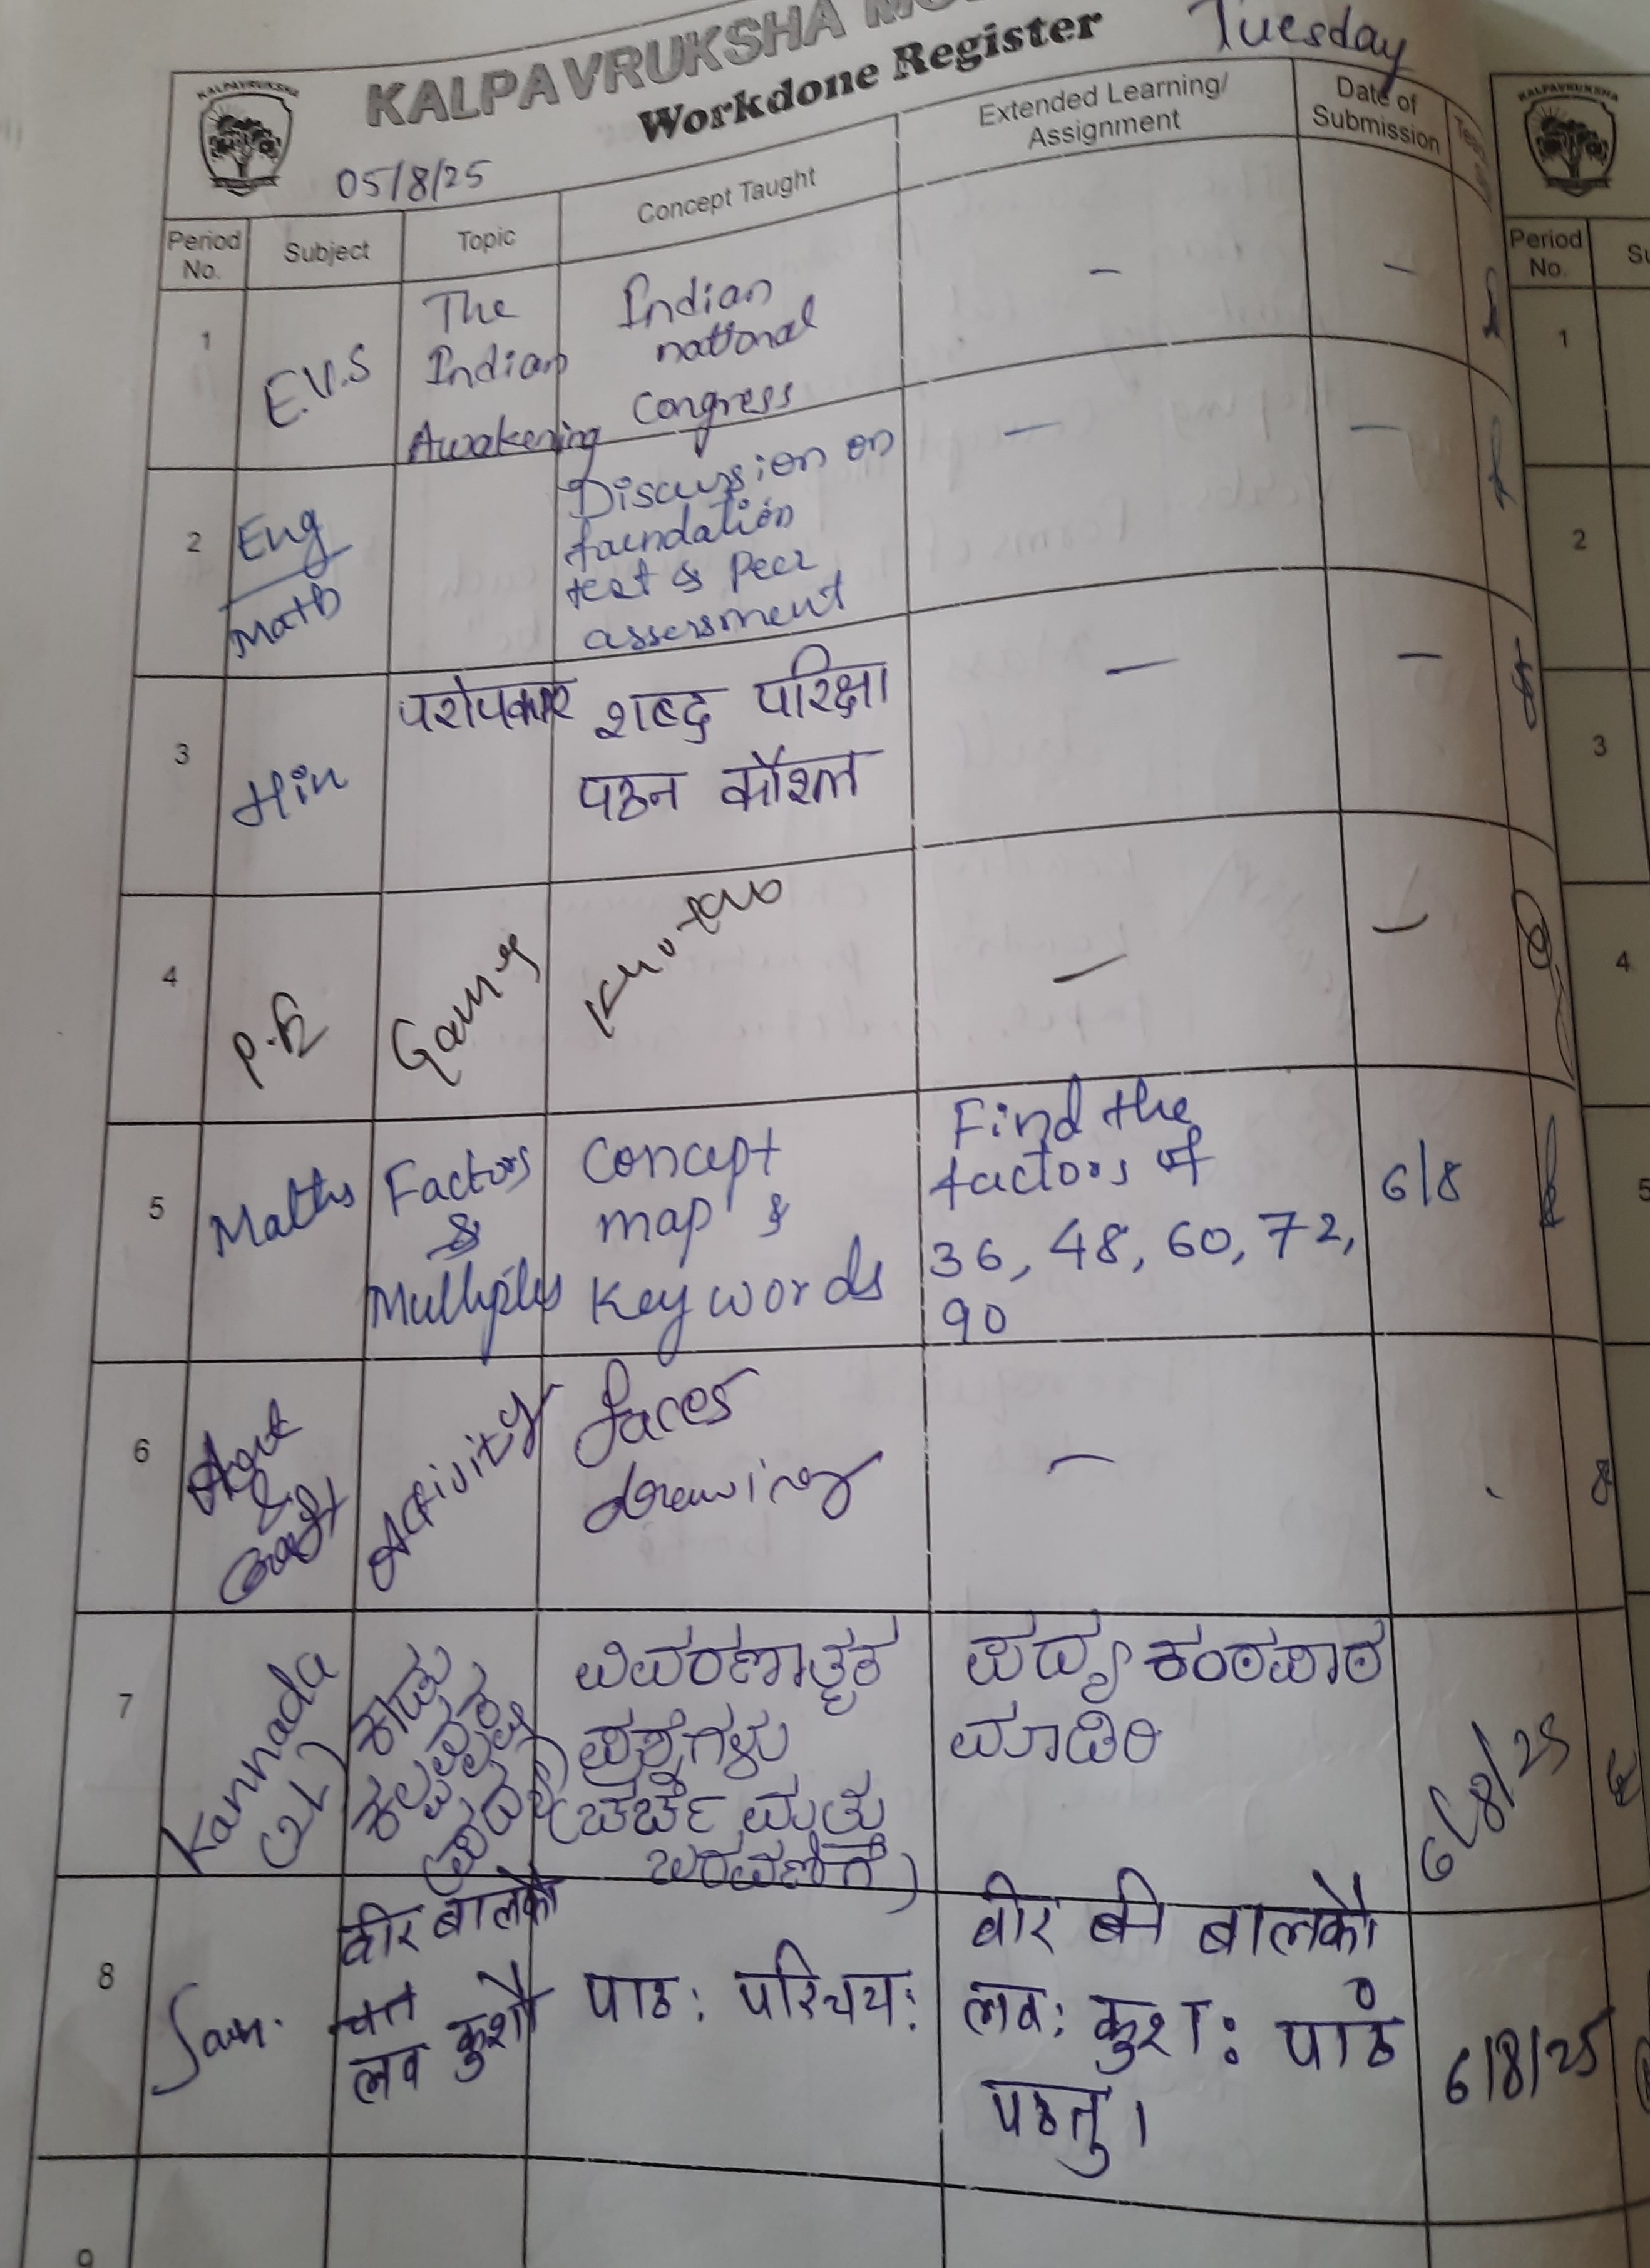 KALPAVRUKSHA
Workdone Register
Tuesday
KALPAVRUKSHA
05/8/25
Period No.
Subject
Topic
Concept Taught
Extended Learning/
Assignment
Date of
Submission
1
E.V.S
The
Indian
Awakening
Indian
national
Congress
–
–
2
Eng
Math
Discussion on
foundation
test & Peer
assessment
–
–
3
Hin
परोपकार
शब्द परिक्षा
पठन कौशल
–
–
4
P.E
Games
Kho-Kho
–
–
5
Maths
Factors
&
Multiples
Concept
map &
Key words
Find the
factors of
36, 48, 60, 72,
90
6/8
6
Art
&
Craft
Activity
faces
drawing
–
7
Kannada
(2L)
ವಿವರಣಾತ್ಮಕ
ಪ್ರಶ್ನೆಗಳು
(ಚರ್ಚೆ ಮತ್ತು
ಬರವಣಿಗೆ)
ಪದ್ಯ ಕಂಠಪಾಠ
ಮಾಡಿರಿ
6/8/25
8
San.
वीर बालकौ
लव कुशौ
पाठ: परिचय:
वीर बालकौ
लव: कुश: पाठं
पठतु।
6/8/25
9
KALPAVRUKSHA
Period
No.
Su
1
2
3
4
5